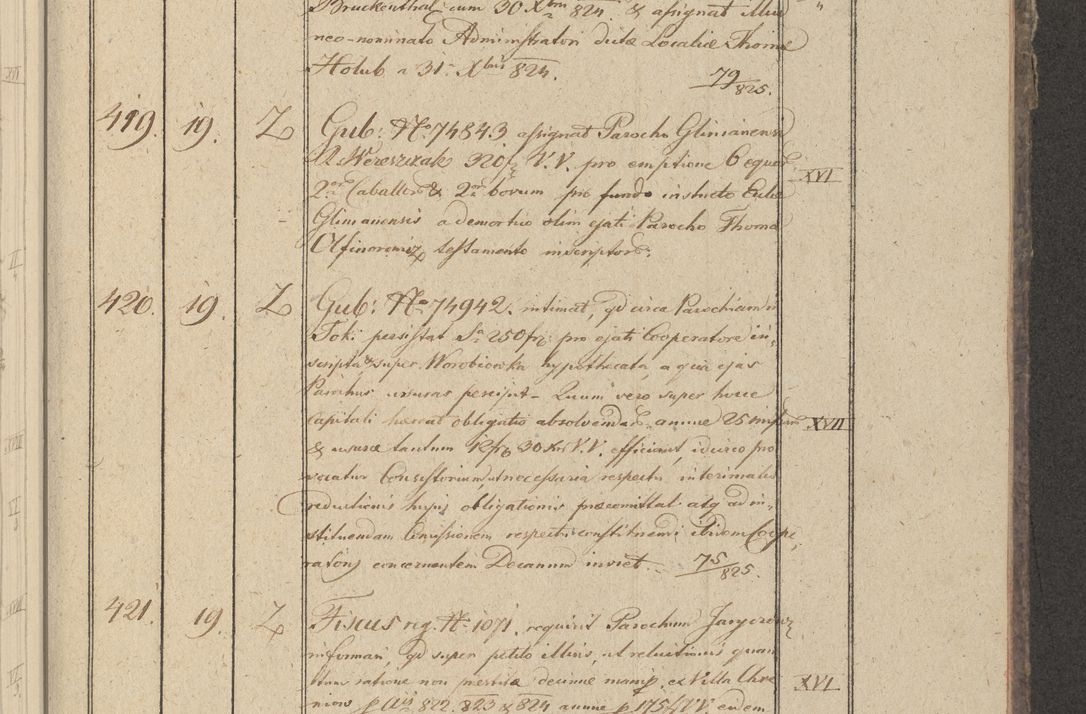 Bruckenthal, cum 30 Xbris 824. & assignat illius
neo-nominato Administratori dictae Localiae Thomae
Holub a 31. Xbris 824. 79/825.
419. 19. Z Gub: No. 74843 assignat Parocho Glinianensi
Wereszczak 320f V.V. pro emptione 6 equor
2or Caballor & 2or bovum pro fundo instructo Eccl
Glinianensis a demortuo olim ejati Parocho Thoma
testamento inscriptor. XVI
420. 19. Z Gub: No. 74942. intimat, qd circa Parochiam
Toki persistat Sa 250fr pro ejati Cooperatore in-
scripta & super Worobiowka hypothecata, a qua ejus
Parochus usuras percipit – Quum vero super hocce
Capitali haereat obligatio absolvendar annue 25 missarum XVII
& usurae tantum 12fr 30 xr V.V. efficiant, idcirco pro
vocatur Consistorium, ut necessaria respectu interimalis
reductionis hujus obligationis praeomittat atq ad in-
stituendam Comissionem respectu constituendi ibidem Coope
ratoris concernentem Decanum invitet. – 75/825.
421. 19. Z Fiscus rg. No. 1071. requirit Parochum
informari, qd super petito illius, ut reluitionis quan
tum ratione non praestitae decimae manip. ex Villa XVI
p Ais 822. 823 & 824 annue p 175f V.V. eidem